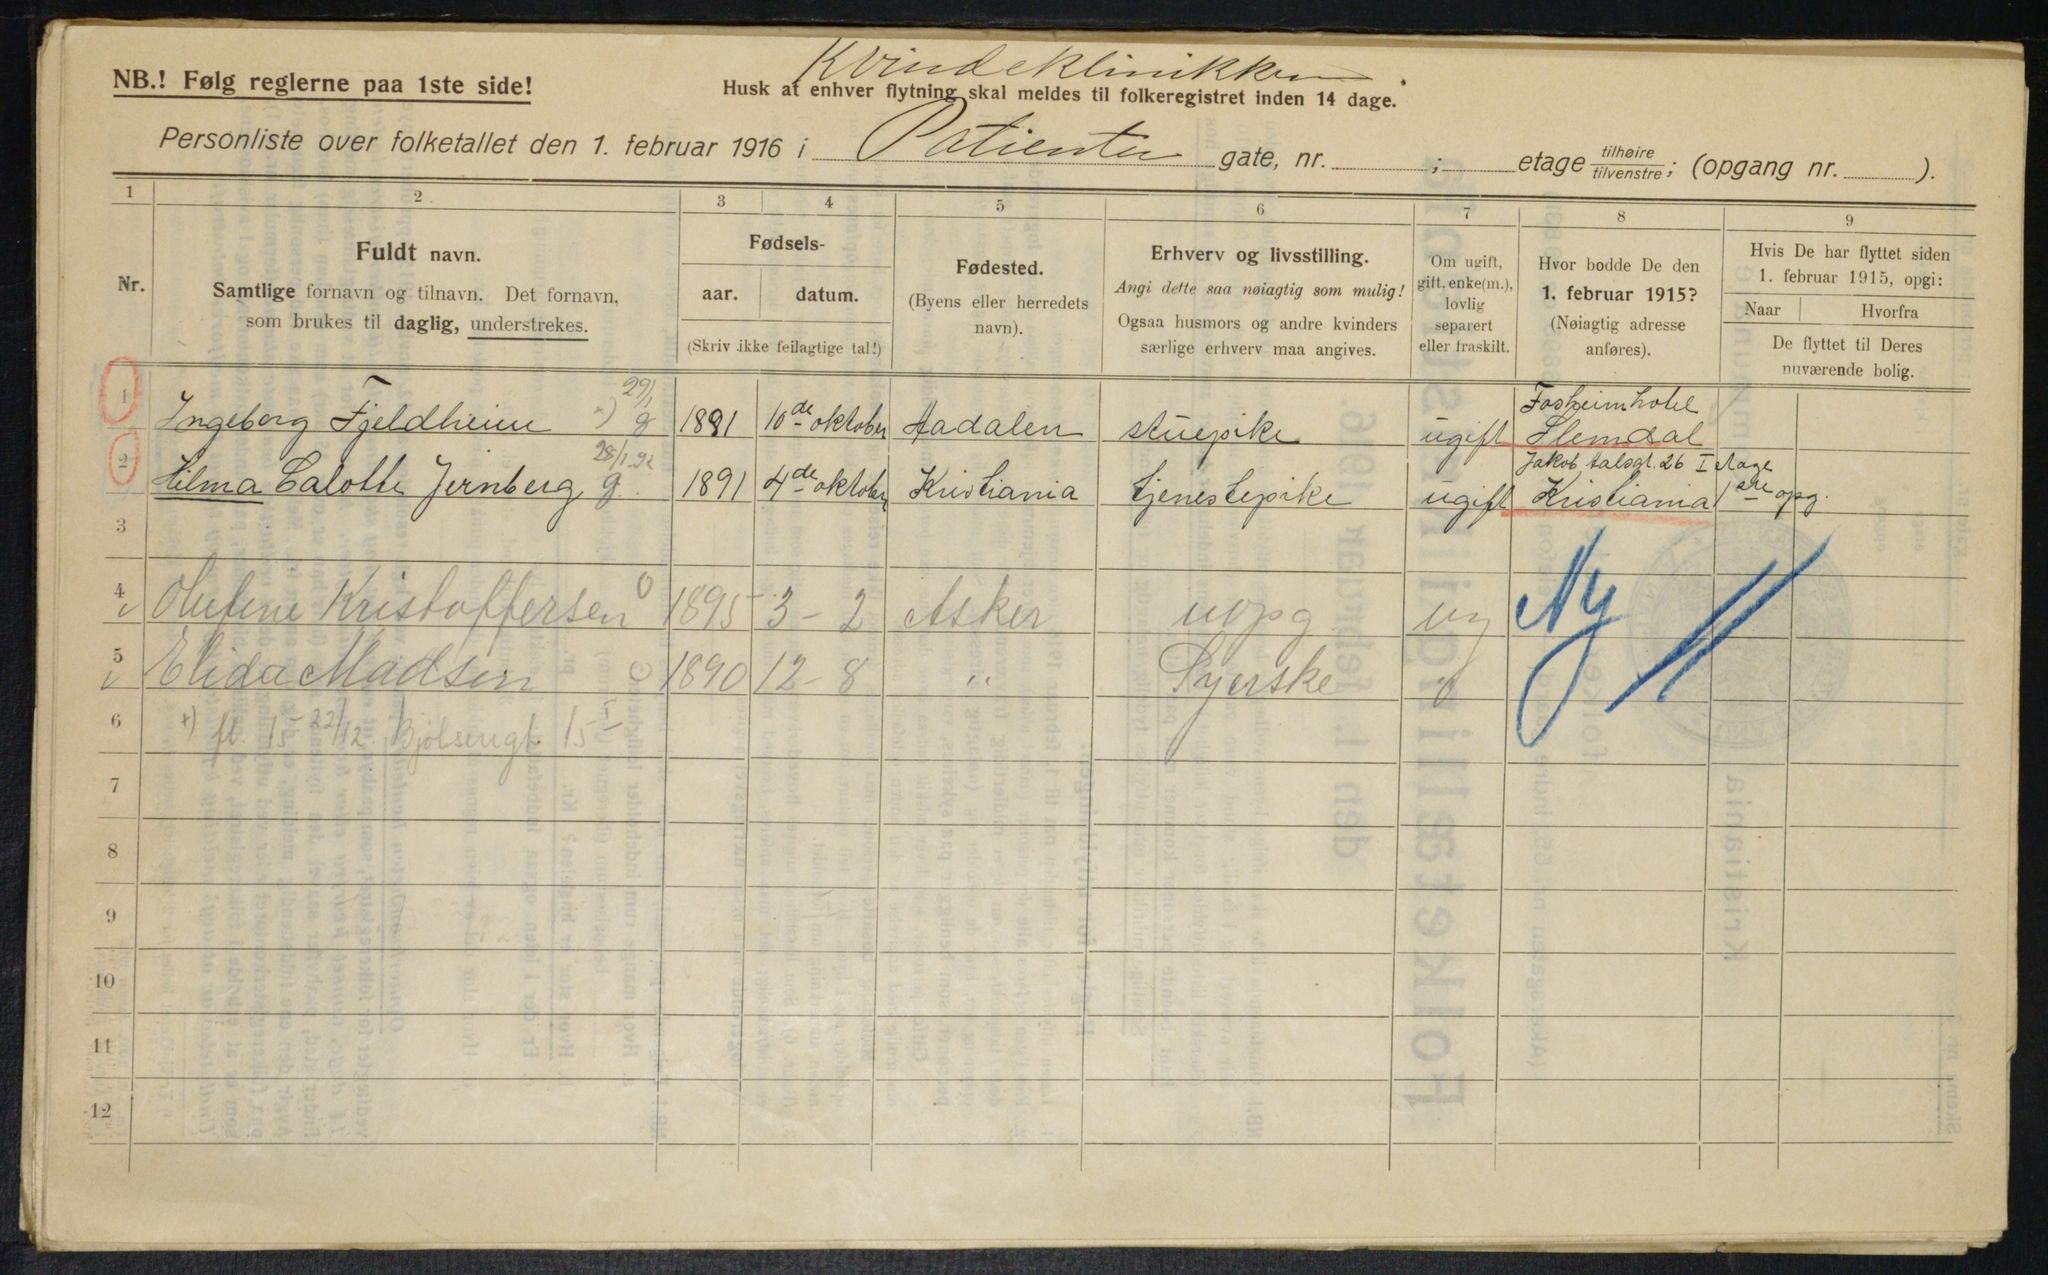 Kvindeklinikken.
NB.! Følg reglerne paa 1ste side!
Husk at enhver flytning skal meldes til folkeregistret inden 14 dage.
Personliste over folketallet den 1. februar 1916 i Patienter gate, nr. ; etage tilhøire tilvenstre; (opgang nr. ).
1 2 3 4 5 6 7 8 9
Nr.
Fuldt navn.
Samtlige fornavn og tilnavn. Det fornavn,
som brukes til daglig, understrekes.
Fødsels-
aar. datum.
(Skriv ikke feilagtige tal!)
Fødested.
(Byens eller herredets
navn).
Erhverv og livsstilling.
Angi dette saa nøiagtig som mulig!
Ogsaa husmors og andre kvinders
særlige erhverv maa angives.
Om ugift,
gift, enke(m.),
lovlig
separert
eller fraskilt.
Hvor bodde De den
1. februar 1915?
(Nøiagtig adresse
anføres).
Hvis De har flyttet siden
1. februar 1915, opgi:
Naar Hvorfra
De flyttet til Deres
nuværende bolig.
29/1
Fosheim hotel
1 Ingeborg Fjeldheim +) g 1891 10de oktober Aadalen stuepike ugift Slemdal
28/1 92
Jakob Aalsgt. 26 I etage
2 Hilma Calotte Jernberg g 1891 4de oktober Kristiania tjenestepike ugift Kristiania 1ste opg.
3
4 Olufine Kristoffersen 0 1895 3-2 Asker uopg ug Ny
5 Elida Madsen 1890 12-8 " Syerske
6 +) fl. 15 22/12 Bjølsengt. 15
7
8
9
10
11
12